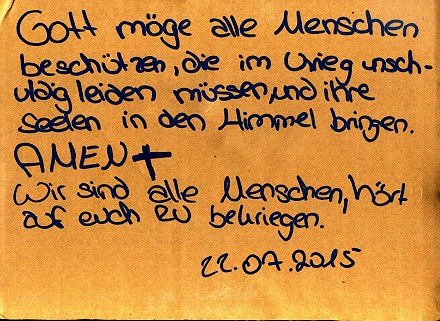 Gott möge alle Menschen
beschützen, die im Krieg unsch-
uldig leiden müssen, und ihre
Seelen in den Himmel bringen.
AMEN ✝
Wir sind alle Menschen, hört
auf euch zu bekriegen.
22.07.2015